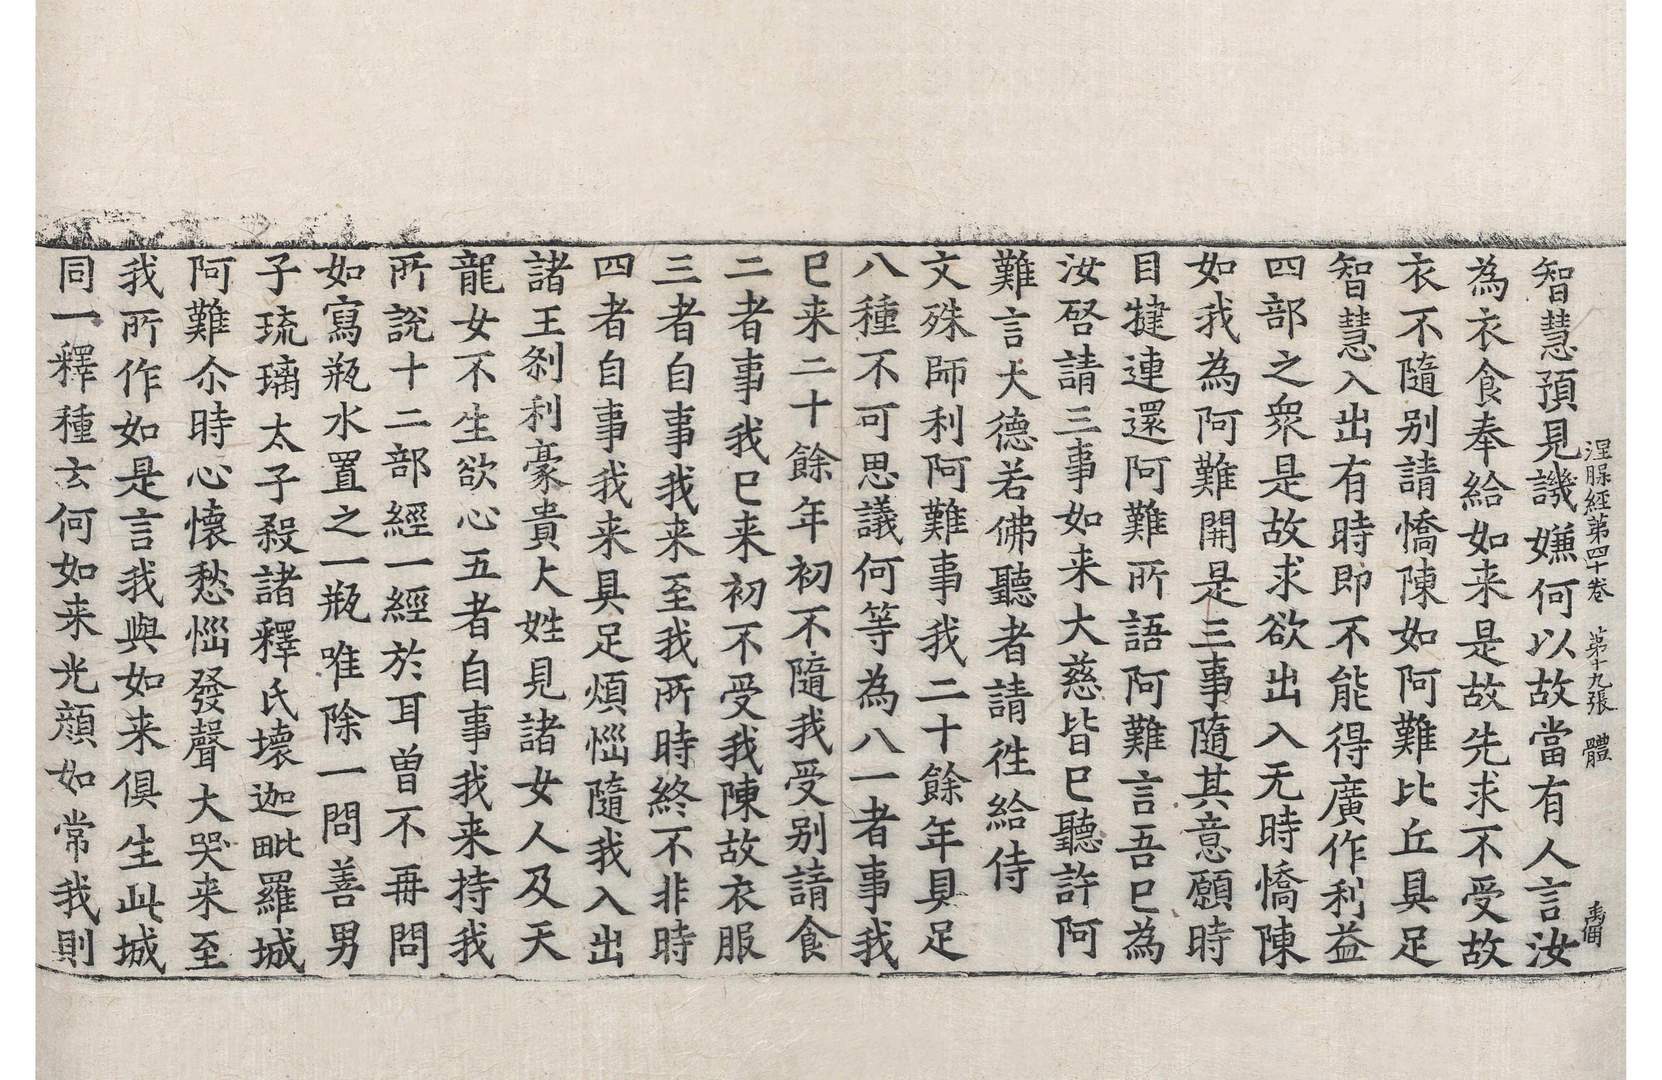 涅槃經第四十卷 第十九張 體 禹個
智慧預見譏嫌何以故當有人言汝
為衣食奉給如来是故先求不受故
衣不隨别請憍陳如阿難比丘具足
智慧入出有時即不能得廣作利益
四部之衆是故求欲出入无時憍陳
如我為阿難開是三事隨其意願時
目揵連還阿難所語阿難言吾巳為
汝啓請三事如来大慈皆巳聽許阿
難言大德若佛聽者請徃給侍
文殊師利阿難事我二十餘年具足
八種不可思議何等為八一者事我
巳来二十餘年初不隨我受别請食
二者事我巳来初不受我陳故衣服
三者自事我来至我所時終不非時
四者自事我来具足煩惱隨我入出
諸王剎利豪貴大姓見諸女人及天
龍女不生欲心五者自事我来持我
所說十二部經一經於耳曽不再問
如寫瓶水置之一瓶唯除一問善男
子琉璃太子殺諸釋氏壞迦毗羅城
阿難尒時心懐愁惱發聲大哭来至
我所作如是言我與如来俱生此城
同一釋種玄何如来光顔如常我則